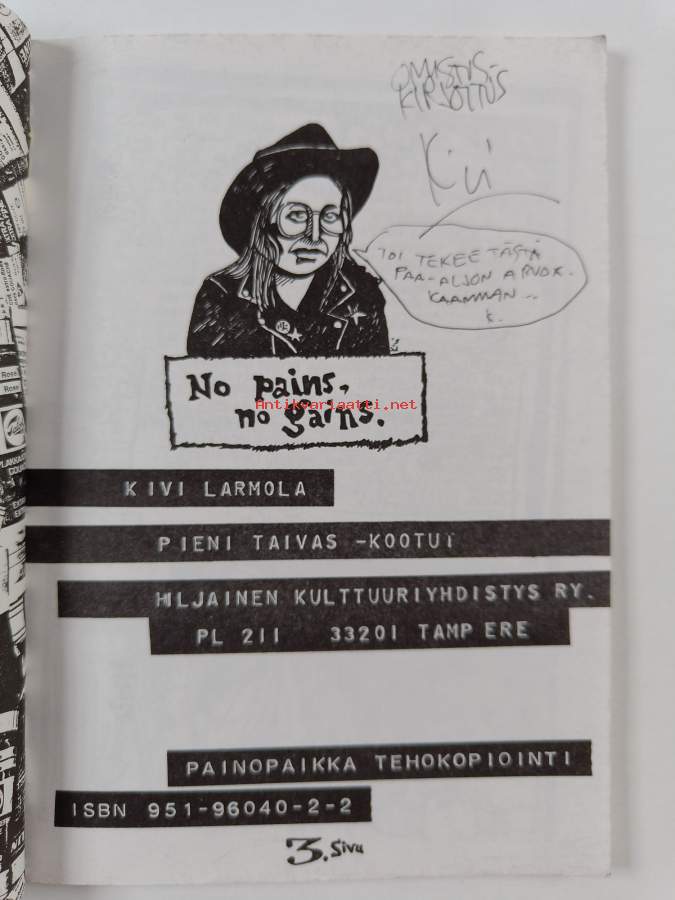 OMISTUS-
KIRJOTTUS
Kivi
TOI TEKEE TÄSTÄ
PAA-ALJON ARVOK-
KAAMMAN...
K.
No pains,
no gains.
Antikvariaatti.net
KIVI LARMOLA
PIENI TAIVAS -KOOTUT
HILJAINEN KULTTUURIYHDISTYS RY.
PL 211 33201 TAMPERE
PAINOPAIKKA TEHOKOPIOINTI
ISBN 951-96040-2-2
3. Sivu